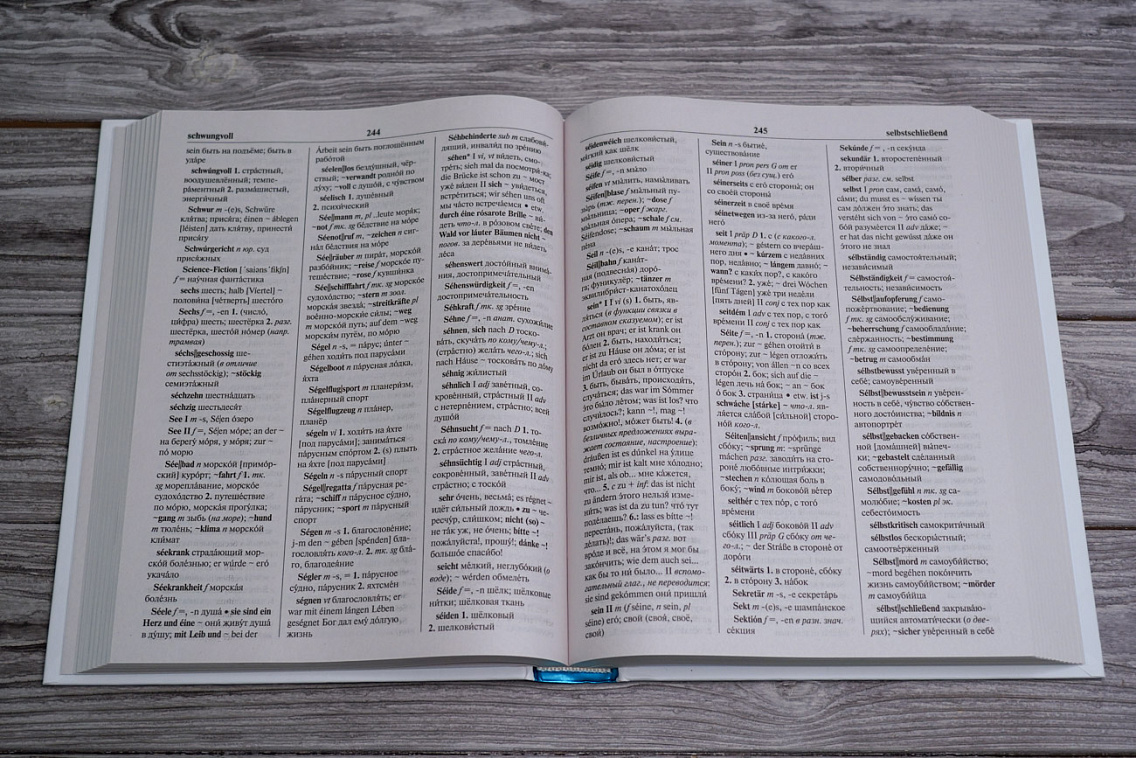 schwungvoll
244
sein быть на подъёме; быть в
уда́ре
schwúngvoll 1. стра́стный,
воодушевлённый; темпе-
ра́ментный 2. разма́шистый,
энерги́чный
Schwur m -(e)s, Schwüre
кля́тва; прися́га; éinen ~ áblegen
[léisten] дать кля́тву, принести́
прися́гу
Schwúrgericht n юр. суд
прися́жных
Science-Fiction [ˈsaiənsˈfikʃn]
f = нау́чная фанта́стика
sechs шесть; halb [Viertel] ~
полови́на [че́тверть] шесто́го
Sechs f =, -en 1. (число́,
ци́фра) шесть; шестёрка 2. разг.
шестёрка, шесто́й но́мер (напр.
трамвая)
séchs|geschossig ше-
стиэта́жный (в отличие
от sechsstöckig); ~stöckig
семиэта́жный
séchzehn шестна́дцать
séchzig шестьдеся́т
See I m -s, Sé|en о́зеро
See II f =, Sé|en мо́ре; an der ~
на берегу́ мо́ря, у мо́ря; zur ~
по́ мо́рю
Sée|bad n морско́й [примо́р-
ский] куро́рт; ~fahrt f 1. тк.
sg морепла́вание, морско́е
судохо́дство 2. путеше́ствие
по́ морю, морска́я прогу́лка;
~gang m зыбь (на море); ~hund
m тюле́нь; ~klima n морско́й
кли́мат
séekrank страда́ющий мор-
ско́й боле́знью; er wúrde ~ его́
укача́ло
Séekrankheit f морска́я
боле́знь
Séele f =, -n душа́ • sie sind ein
Herz und éine ~ они́ живу́т душа́
в ду́шу; mit Leib und ~ bei der
Árbeit sein быть поглощённым
рабо́той
séelen|los безду́шный, чёр-
ствый; ~verwandt родно́й по
ду́ху; ~voll с душо́й, с чу́вством
séelisch 1. душе́вный
2. психи́ческий
Sée|mann m, pl ..leute моря́к;
~not f тк. sg бе́дствие на мо́ре
Séenot|ruf m, ~zeichen n сиг-
на́л бе́дствия на мо́ре
Sée|räuber m пира́т, морско́й
разбо́йник; ~reise f морско́е пу-
теше́ствие; ~rose f кувши́нка
Sée|schifffahrt f тк. sg морско́е
судохо́дство; ~stern m зоол.
морска́я звезда́; ~streitkräfte pl
вое́нно-морски́е си́лы; ~weg
m морско́й путь; auf dem ~weg
морски́м путём, по мо́рю
Ségel n -s, = па́рус; únter ~
géhen ходи́ть под паруса́ми
Ségelboot n па́русная ло́дка,
я́хта
Ségelflugsport m планери́зм,
пла́нерный спорт
Ségelflugzeug n пла́нер,
планёр
ségeln vi 1. ходи́ть на я́хте
[под паруса́ми]; занима́ться
па́русным спо́ртом 2. (s) плыть
на я́хте [под паруса́ми]
Ségeln n -s па́русный спорт
Ségel|regatta f па́русная ре-
га́та; ~schiff n па́русное су́дно,
па́русник; ~sport m па́русный
спорт
Ségen m -s 1. благослове́ние;
j-m den ~ gében [spénden] бла-
гословля́ть кого-л. 2. тк. sg бла́-
го, благодея́ние
Ségler m -s, = 1. па́русное
су́дно, па́русник 2. яхтсме́н
ségnen vt благословля́ть; er
war mit éinem lángen Lében
geségnet Бог дал ему́ до́лгую
жизнь
Séhbehinderte sub m слабови́-
дящий, инвали́д по зре́нию
séhen* I vi, vt ви́деть, смо-
тре́ть; sieh mal da посмотри́-ка;
die Brücke ist schon zu ~ мост
уже́ ви́ден II sich ~ уви́деться,
встре́титься; wir séhen uns oft
мы ча́сто встреча́емся • etw.
durch éine rósarote Brille ~ ви́-
деть что-л. в ро́зовом све́те; den
Wald vor láuter Bäumen nicht ~
погов. за дере́вьями не ви́деть
ле́са
séhenswert досто́йный внима́-
ния, достопримеча́тельный
Séhenswürdigkeit f =, -en
достопримеча́тельность
Séhkraft f тк. sg зре́ние
Séhne f =, -n анат. сухожи́лие
séhnen, sich nach D тоско-
ва́ть, скуча́ть по кому/чему-л.;
(стра́стно) жела́ть чего-л.; sich
nach Háuse ~ тоскова́ть по до́му
séhnig жи́листый
séhnlich I adj заве́тный, со-
крове́нный, стра́стный II adv
с нетерпе́нием, стра́стно; всей
душо́й
Séhnsucht f = nach D 1. то-
ска́ по кому/чему-л., томле́ние
2. стра́стное жела́ние чего-л.
séhnsüchtig I adj стра́стный,
сокрове́нный, заве́тный II adv
стра́стно; с тоско́й
sehr о́чень, весьма́; es régnet ~
идёт си́льный дождь • zu ~ че-
ресчу́р, сли́шком; nicht (so) ~
не так уж, не о́чень; bítte ~!
пожа́луйста!, прошу́!; dánke ~!
большо́е спаси́бо!
seicht ме́лкий, неглубо́кий (о
воде); ~ wérden обмеле́ть
Séide f =, -n шёлк; шёлковые
ни́тки; шёлковая ткань
séiden 1. шёлковый
2. шелкови́стый
245
selbstschließend
séidenweich шелкови́стый,
мя́гкий как шёлк
séidig шелкови́стый
Séife f =, -n мы́ло
séifen vt мы́лить, намы́ливать
Séifen|blase f мы́льный пу-
зы́рь (тж. перен.); ~dose f
мы́льница; ~oper f жарг.
мы́льная о́пера; ~schale f см.
Séifendose; ~schaum m мы́льная
пе́на
Seil n -(e)s, -e кана́т; трос
Séil|bahn f кана́т-
ная (подвесна́я) доро́-
га, фуникулёр; ~tänzer m
эквилибри́ст-канатохо́дец
sein* I 1 vi (s) 1. быть, яв-
ля́ться (в функции связки в
составном сказуемом); er ist
Arzt он врач; er ist krank он
бо́лен 2. быть, находи́ться;
er ist zu Háuse он до́ма; er ist
nicht da его́ здесь нет; er war
im Úrlaub он был в о́тпуске
3. быть, быва́ть, происходи́ть,
случа́ться; das war im Sómmer
э́то бы́ло ле́том; was ist los? что
случи́лось?; kann ~!, mag ~!
возмо́жно!, мо́жет быть! 4. (в
безличных предложениях выра-
жает состояние, настроение):
dráußen ist es dúnkel на у́лице
темно́; mir ist kalt мне хо́лодно;
mir ist, als ob... мне ка́жется,
что... 5. с zu + inf: das ist nicht
zu ändern э́того нельзя́ изме-
ни́ть; was ist da zu tun? что тут
поде́лаешь? 6.: lass es bítte ~!
переста́нь, пожа́луйста, (так
де́лать)!; das wär's разг. вот
вро́де и всё, на э́том я мог бы
зако́нчить; wie dem auch sei...
как бы то ни́ было... II вспомо-
гательный глаг., не переводится:
sie sind gekómmen они́ пришли́
sein II m (f séine, n sein, pl
séine) его́; свой (своя́, своё,
свои́)
Sein n -s бытие́,
существова́ние
séiner I pron pers G от er
II pron poss (без сущ.) его́
séinerseits с его́ стороны́; он
со свое́й стороны́
séinerzeit в своё вре́мя
séinetwegen из-за него́, ра́ди
него́
seit I präp D 1. с (с какого-л.
момента); ~ géstern со вчера́ш-
него дня • ~ kúrzem с неда́вних
пор, неда́вно; ~ lángem давно́; ~
wann? с каки́х пор?, с како́го
вре́мени? 2. уже́; ~ drei Wóchen
[fünf Tágen] уже́ три неде́ли
[пять дней] II conj с тех пор как
seitdém I adv с тех пор, с того́
вре́мени II conj с тех пор как
Séite f =, -n 1. сторона́ (тж.
перен.); zur ~ géhen отойти́ в
сто́рону; zur ~ légen отложи́ть
в сто́рону; von állen ~n со всех
сторо́н 2. бок; sich auf die ~
légen лечь на́ бок; ~ an ~ бок
о́ бок 3. страни́ца • etw. ist j-s
schwáche [stárke] ~ что-л. яв-
ля́ется сла́бой [си́льной] сторо-
но́й кого-л.
Séiten|ansicht f про́филь; вид
сбо́ку; ~sprung m: ~sprünge
máchen разг. заводи́ть на сто-
роне́ любо́вные интри́жки;
~stechen n ко́лющая боль в
боку́; ~wind m боково́й ве́тер
seithér с тех по́р, с того́
вре́мени
séitlich I adj боково́й II adv
сбо́ку III präp G сбо́ку от че-
го-л.; ~ der Stráße в стороне́ от
доро́ги
séitwärts 1. в стороне́, сбо́ку
2. в сто́рону 3. на́бок
Sekretär m -s, -e секрета́рь
Sekt m -(e)s, -e шампа́нское
Sektión f =, -en в разн. знач.
се́кция
Sekúnde f =, -n секу́нда
sekundär 1. второстепе́нный
2. втори́чный
sélber разг. см. selbst
selbst I pron сам, сама́, само́,
са́ми; du musst es ~ wíssen ты
сам до́лжен э́то знать; das
verstéht sich von ~ э́то само́ со-
бо́й разуме́ется II adv да́же; ~
er hat das nicht gewüsst да́же он
э́того не знал
sélbständig самостоя́тельный;
незави́симый
Sélbständigkeit f = самостоя́-
тельность; незави́симость
Sélbst|aufopferung f само-
поже́ртвование; ~bedienung
f тк. sg самообслу́живание;
~beherrschung f самооблада́ние;
сде́ржанность; ~bestimmung
f тк. sg самоопределе́ние;
~betrug m самообма́н
sélbstbewusst уве́ренный в
себе́; самоуве́ренный
Sélbst|bewusstsein n уве́рен-
ность в себе́, чу́вство со́бствен-
ного досто́инства; ~bildnis n
автопортре́т
sélbst|gebacken со́бствен-
ной [дома́шней] вы́печ-
ки; ~gebastelt сде́ланный
собственнору́чно; ~gefällig
самодово́льный
Sélbst|gefühl n тк. sg са-
молю́бие; ~kosten pl эк.
себесто́имость
sélbstkritisch самокрити́чный
sélbstlos бескоры́стный;
самоотве́рженный
Sélbst|mord m самоуби́йство;
~mord begéhen поко́нчить
жизнь самоуби́йством; ~mörder
m самоуби́йца
sélbst|schließend закрыва́ю-
щийся автомати́чески (о две-
рях); ~sicher уве́ренный в себе́